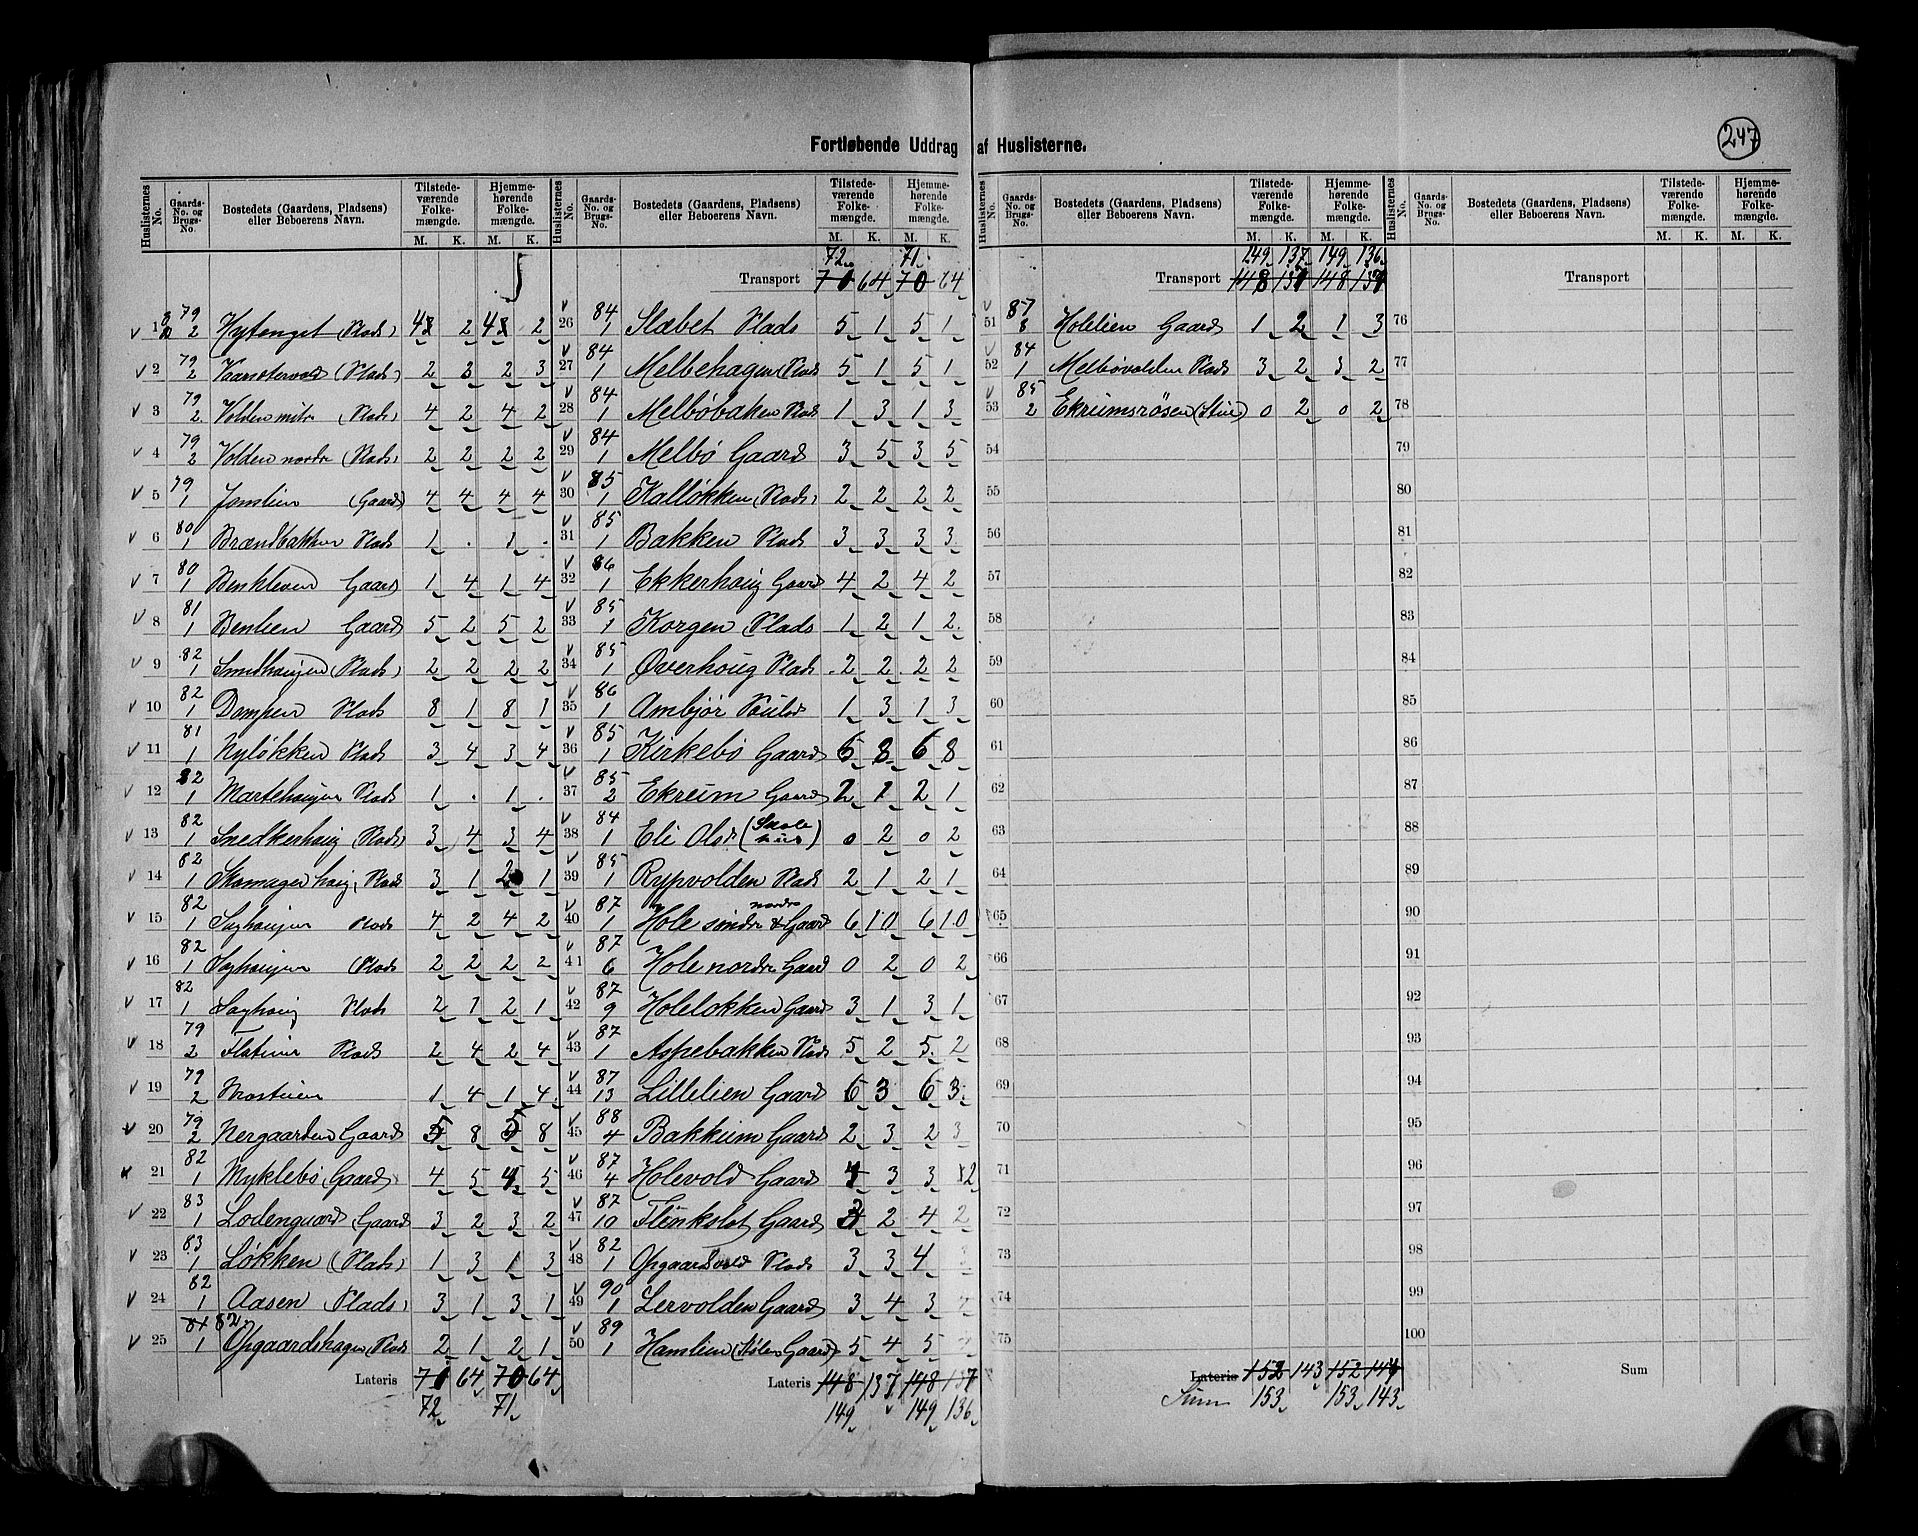 247
Fortløbende Uddrag af Huslisterne.
Huslisternes No. Gaards-No. og Brugs-No. Bostedets (Gaardens, Pladsens) eller Beboerens Navn. Tilstedeværende Folkemængde. M. K. Hjemmehørende Folkemængde. M. K.
1 79 2 Plads) 4 2 4 2
2 79 2 (Plads) 2 2 2 3
3 79 2 Volden mitr (Plads) 4 2 4 2
4 79 2 Volden nordre (Plads) 2 2 2 2
5 79 1 Jonslien (Gaard) 4 4 4 4
6 80 1 Brændbakken Plads 1 . 1 .
7 80 1 Benkleven Gaard 1 4 1 4
8 81 1 Benlien Gaard 5 2 5 2
9 82 1 Smedhaugen (Plads) 2 2 2 2
10 82 1 Dompen Plads 8 1 8 1
11 81 1 Nyløkken Plads 3 4 3 4
12 82 1 Martehaugen Plads 1 . 1 .
13 82 1 Snedkerhaug (Plads) 3 4 3 4
14 82 1 Skomagerhaug, Plads 3 1 2 1
15 82 1 Saghaugen Plads 4 2 4 2
16 82 1 Saghaugen (Plads 2 2 2 2
17 82 1 Saghaug Plads 2 1 2 1
18 79 2 Plads 2 4 2 4
19 79 2 1 4 1 4
20 79 2 Nergaarden Gaard 5 8 5 8
21 82 1 Myklebø (Gaard) 4 5 4 5
22 83 1 Lodengaard (Gaard) 3 2 3 2
23 83 1 Løkken (Plads) 1 3 1 3
24 82 1 Aasen (Plads) 3 1 3 1
25 81 82 1 Opgaardshagen (Plads 2 1 2 1
Lateris 70 64 70 64
72 71
72 71
Transport 70 64 70 64
26 84 1 Slæbet Plads 5 1 5 1
27 84 1 Melbehagen (Plads 5 1 5 1
28 84 1 Melbøbaken Plads 1 3 1 3
29 84 1 Melbø Gaard 3 5 3 5
30 85 1 Kalløkken (Plads) 2 2 2 2
31 85 1 Bakken Plads 3 3 3 3
32 86 1 Ekkerhaug Gaard 4 2 4 2
33 85 1 Korgen Plads 1 2 1 2
34 85 1 Øverhoug Plads 2 2 2 2
35 86 1 Ambjør Poulsd 1 3 1 3
36 85 1 Kirkebø Gaard 6 8 6 8
37 85 2 Ekrum Gaard 2 1 2 1
38 84 1 Eli Olsd 0 2 0 2
39 85 1 Rypvolden Plads 2 1 2 1
40 87 1 Hole søndre & nordre Gaard 6 10 6 10
41 87 6 Hole nordre Gaard 0 2 0 2
42 87 9 Holeløkken Gaard 3 1 3 1
43 87 1 Aspebakken Plads 5 2 5 2
44 87 13 Lillelien Gaard 6 3 6 3
45 88 4 Bakkum Gaard 2 3 2 3
46 87 4 Holevold Gaard 4 3 3 2
47 87 10 Gaard 3 2 4 2
48 82 1 Opgaardsvold Plads 3 3 4 3
49 90 1 Lervolden Gaard 3 4 3 4
50 89 1 Hamlien Gaard) 5 4 5 4
Lateris 148 137 148 137
149 149 136
149 137 149 136
Transport 148 137 148 137
51 87 8 Holelien Gaard 1 2 1 3
52 84 1 Melbøvolden Plads 3 2 3 2
53 85 2 Ekrumsrøsen 0 2 0 2
54
55
56
57
58
59
60
61
62
63
64
65
66
67
68
69
70
71
72
73
74
75
Lateris 152 143 152 144
Sum 153 153 143
Transport
76
77
78
79
80
81
82
83
84
85
86
87
88
89
90
91
92
93
94
95
96
97
98
99
100
Sum